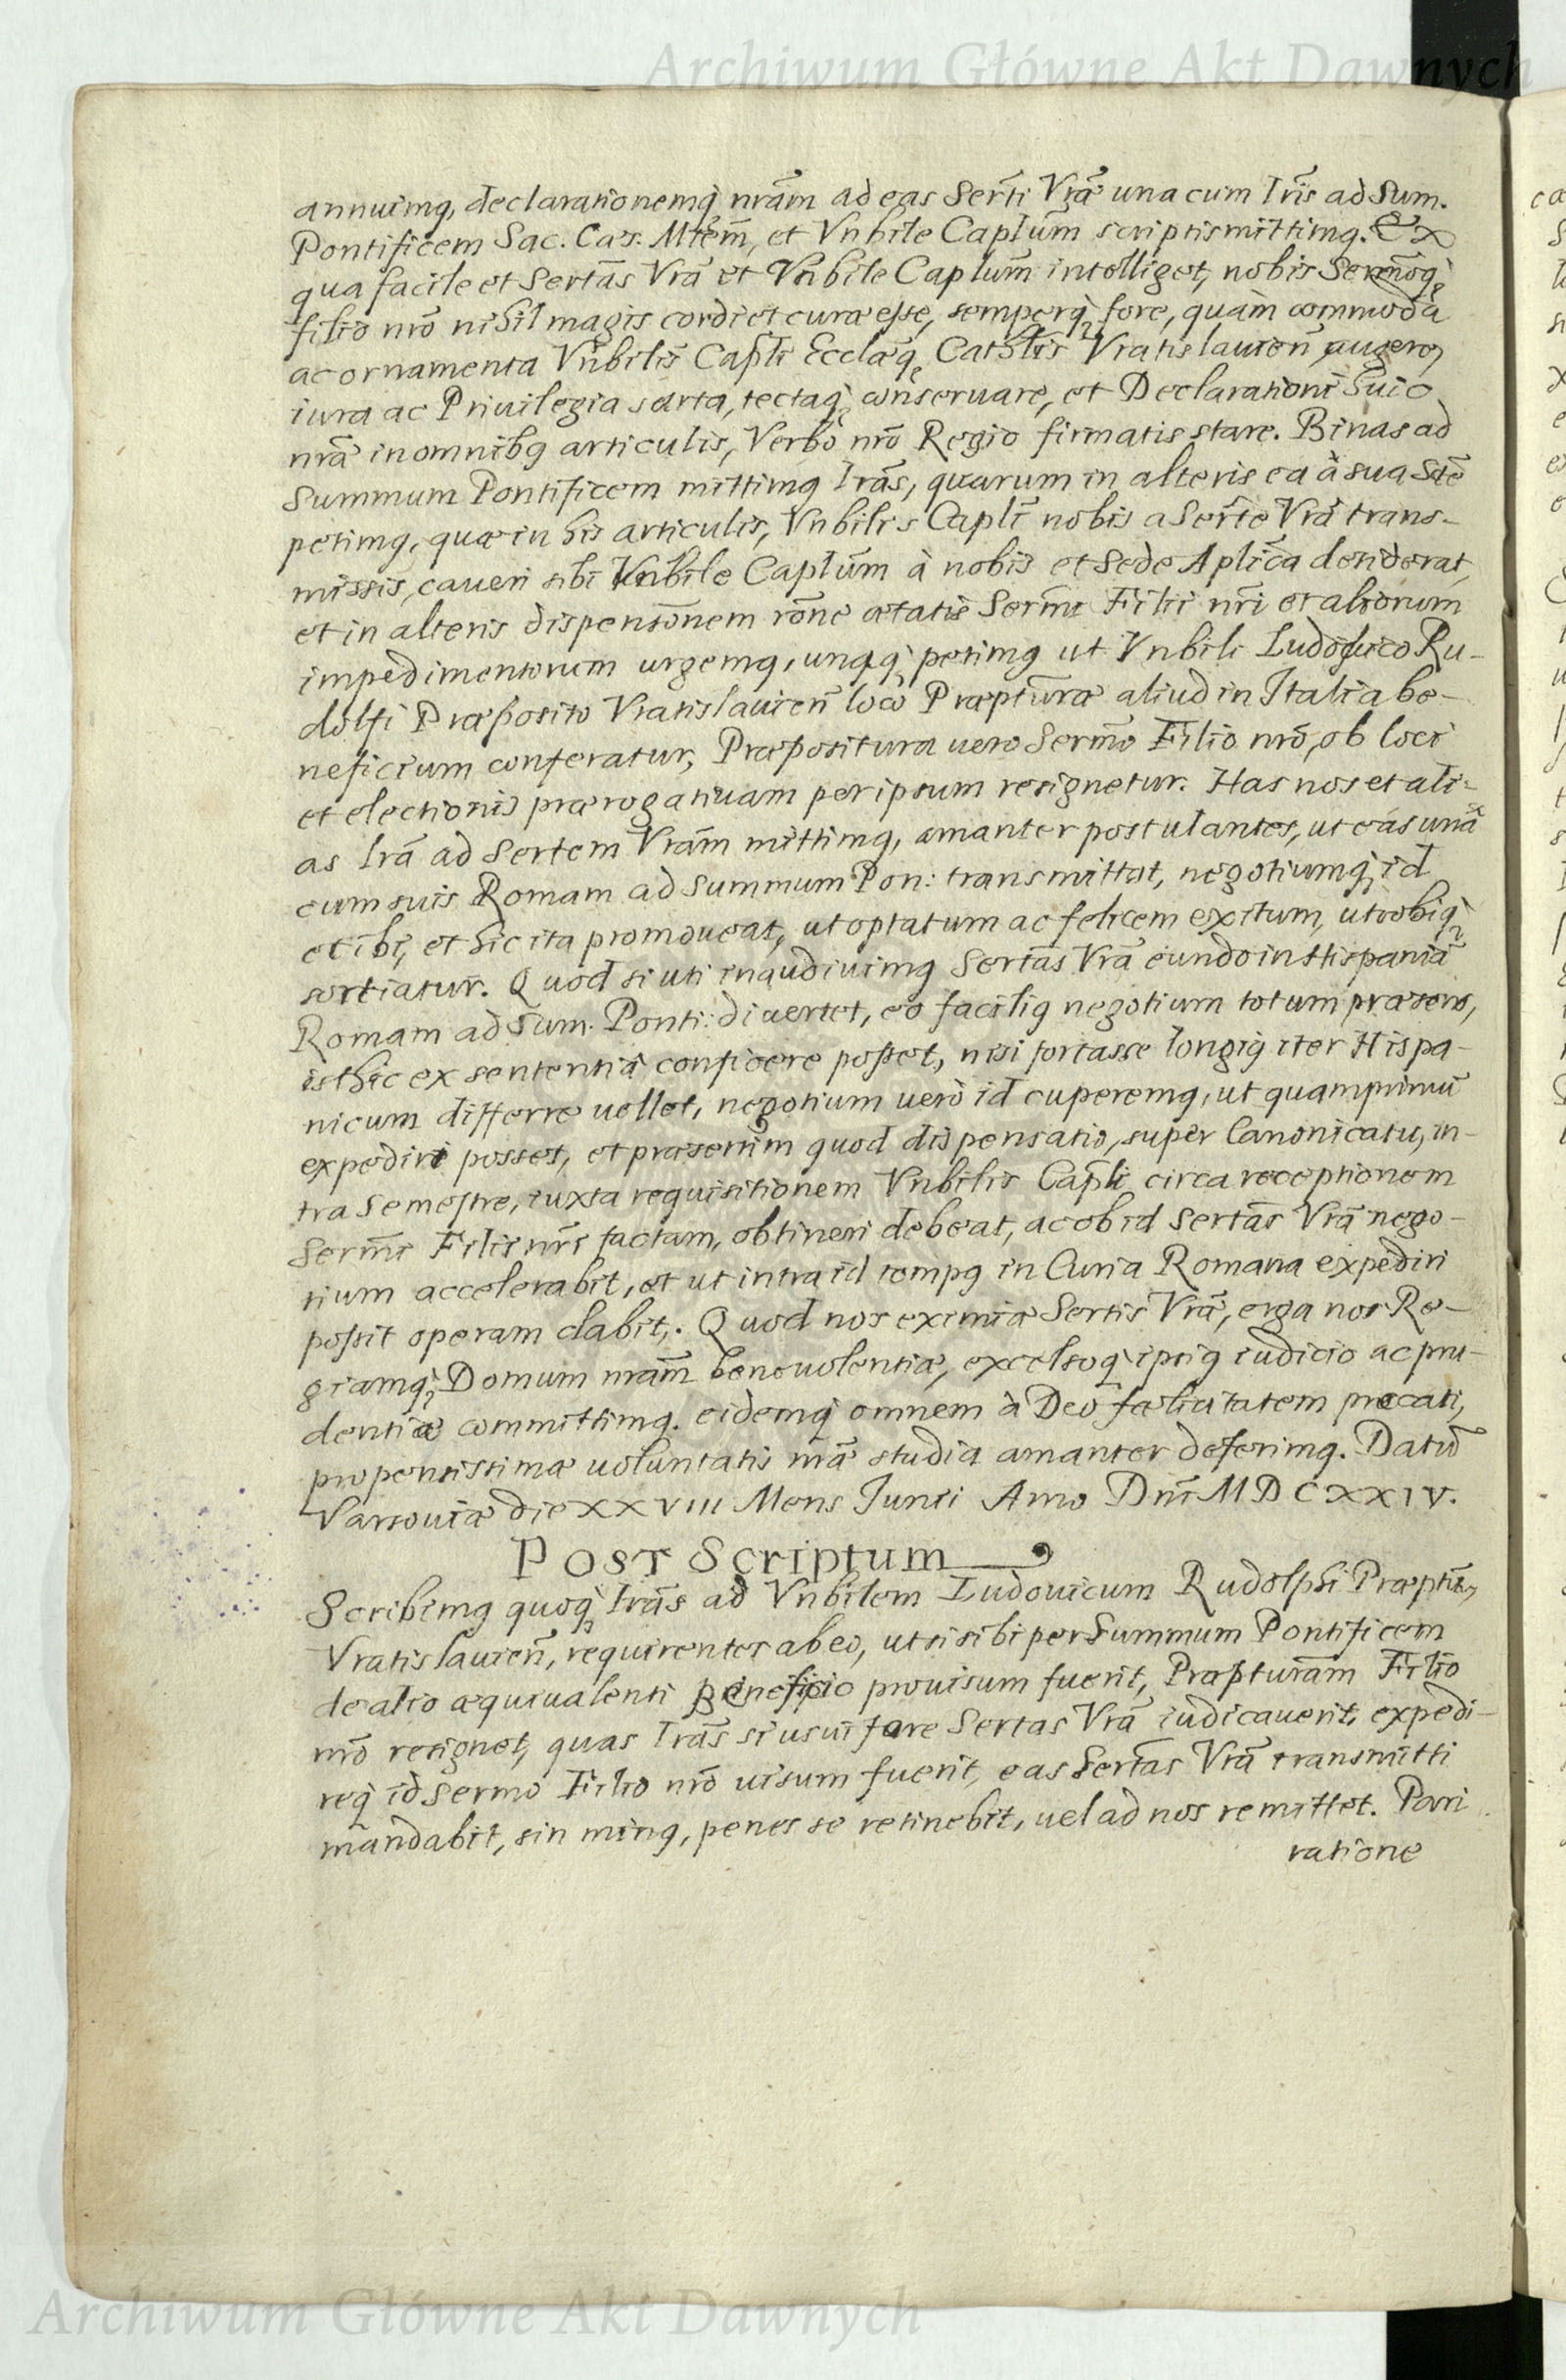 Archiwum Główne Akt Dawnych
annuimq, declarationemq̀ nrãm ad eas Serti Vrã una cum lris ad Sum.
Pontificem Sac. Caes. Mtem̃, et Vnbile Caplum̃ scriptis mittimq. Ex
qua facile et Sertãs Vrã et Vñbile Caplum̃ intelliget, nobis Serenoq̀
filio nrõ nihil magis cordi et curæ esse, semperq̀ fore, quàm commoda
ac ornamenta Vñbilis Capli Ecclæq̀ Cathlis Vratislauien̄ augere,
iura ac Priuilegia sarta, tectaq̀ conseruare, et Declarationi huic
nrã in omnibq articulis, Verbo nrõ Regio firmatis stare. Binas ad
Summum Pontificem mittimq lrãs, quarum in alteris ea à sua Stẽ
petimq, quæ in his articulis, Vnbilis Capli nobis a Serte Vrã trans-
missis, caueri sibi Vnbile Caplum̃ à nobis et Sede Aplica desiderat,
et in alteris dispensõnem rõne ætatis Sermi Filii nri et aliorum
impedimentorum urgemq, unaq̀ petimq ut Vnbili Ludouico Ru-
dolfi Præposito Vratislauien̄ loco Præpturæ aliud in Italia be-
neficium conferatur, Præpositura uero Sermõ Filio nrõ, ob loci
et electionis prærogatiuam per ipsum resignetur. Has nos et ali-
as lrã ad Sertem Vrãm mittimq, amanter postulantes, ut eás unã
cum suis Romam ad Summum Pon: transmittat, negotiumq̀ id
et ibi, et hic ita promoueat, ut optatum ac felicem exitum, utrobiq̀
sortiatur. Quod si uti inaudiuimq Sertãs Vrã eundo in Hispaniã
Romam ad Sum. Ponti: diuertet, eo faciliq negotium totum præsens,
isthic ex sententia conficere posset, nisi fortasse longiq iter Hispa-
nicum differre uellet, negotium uerò id cuperemq, ut quamprimũ
expediri posset, et præsertim quod dispensatio, super Canonicatu, in-
tra Semestre, iuxta requisitionem Vnbilis Capli circa receptionem
Sermi Filii nri factam, obtineri debeat, ac ob id Sertãs Vrã nego-
tium accelerabit, et ut intra id tempq in Curia Romana expediri
possit operam dabit. Quod nos eximiæ Sertis Vrã, erga nos Re-
giamq̀ Domum nrãm beneuolentiæ, excelsoq̀ ipsiq iudicio ac pru-
dentiæ committimq. eidemq̀ omnem à Deo fœlicitatem precati,
propensissimæ uoluntatis nrã studia amanter deferimq. Datũ
Varsouiæ die XXVIII Mens Junii Anno Dnĩ MDCXXIV.
Post Scriptum
Scribimq quoq̀ lrãs ad Vnbilem Ludouicum Rudolphi Præptũ,
Vratislauien̄, requirentes ab eo, ut si sibi per Summum Pontificem
de alio æquiualenti Beneficio prouisum fuerit, Præpturãm Filio
nrõ resignet, quas lrãs si usui fore Sertas Vrã iudicauerit, expedi-
req̀ id Sermo Filio nrõ uisum fuerit, eas Sertãs Vrã transmitti
mandabit, sin minq, penes se retinebit, uel ad nos remittet. Pari
ratione
Archiwum Główne Akt Dawnych